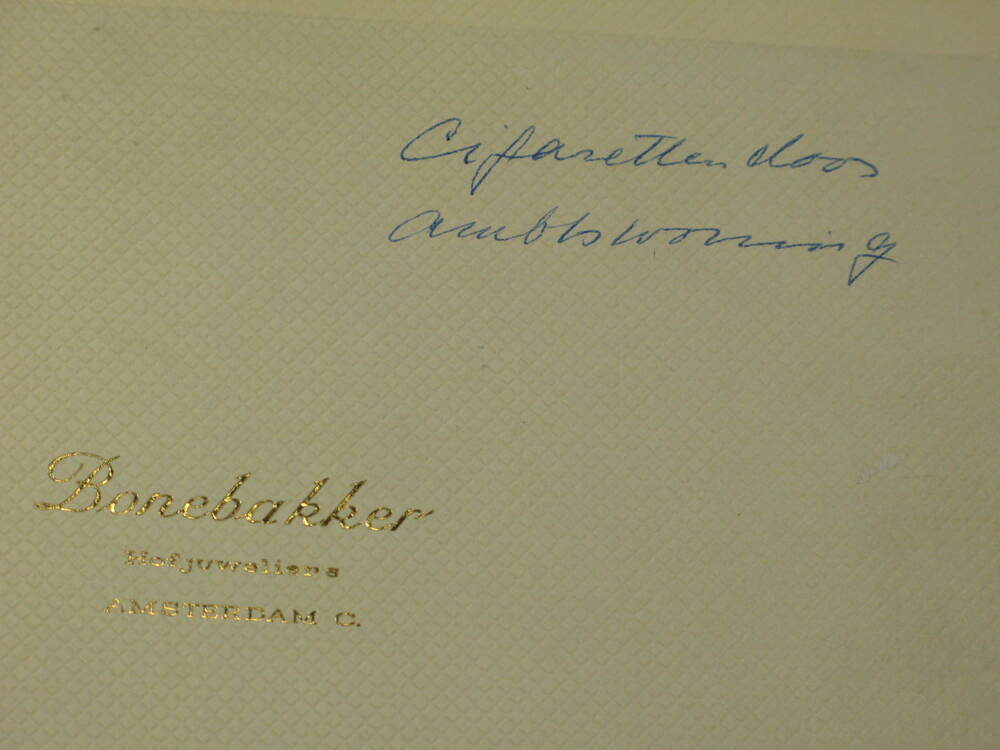 Cigarettendoos
ambtswoning
Bonebakker
Hofjuweliers
AMSTERDAM C.